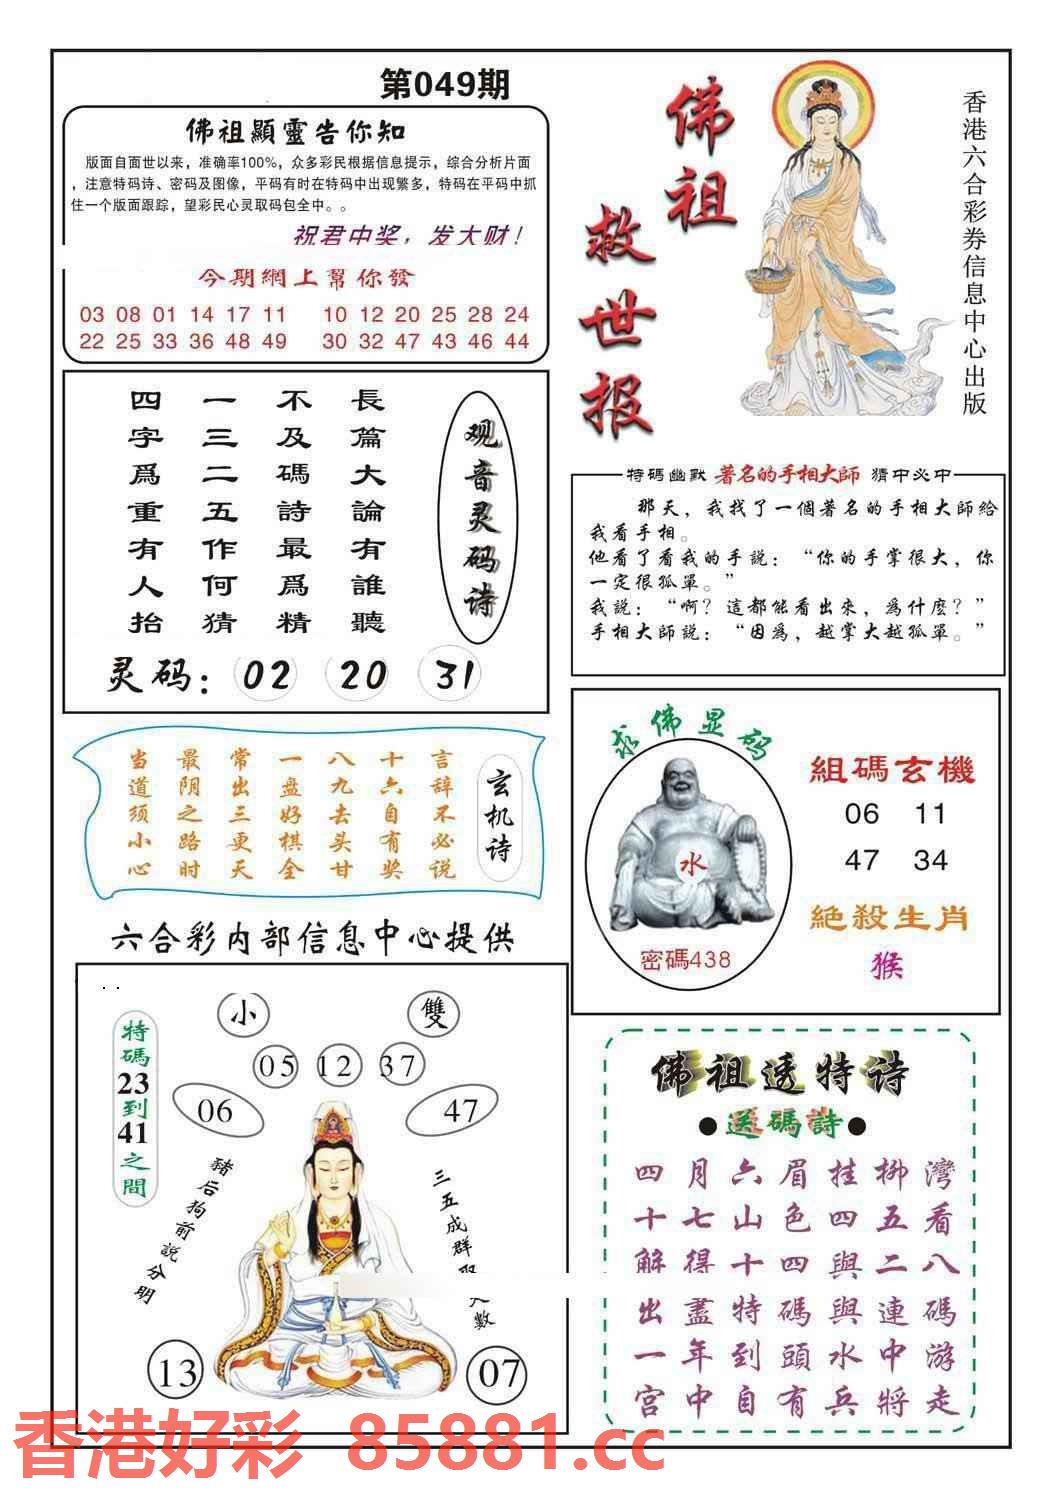 第049期
佛祖顯靈告你知
版面自面世以来，准确率100%，众多彩民根据信息提示，综合分析片面
，注意特码诗、密码及图像，平码有时在特码中出现繁多，特码在平码中抓
住一个版面跟踪，望彩民心灵取码包全中。。
祝君中奖，发大财！
今期網上幫你發
03 08 01 14 17 11 10 12 20 25 28 24
22 25 33 36 48 49 30 32 47 43 46 44
佛祖
救世报
香港六合彩券信息中心出版
观音灵码诗
長篇大論有誰聽
不及碼詩最爲精
一三二五作何猜
四字爲重有人抬
灵码：02 20 31
特碼幽默 著名的手相大師 猜中必中
那天，我找了一個著名的手相大師給
我看手相。
他看了看我的手説：“你的手掌很大，你
一定很孤單。”
我説：“啊？這都能看出來，爲什麽？”
手相大師説：“因爲，越掌大越孤單。”
玄机诗
言辞不必说
十六自有奖
八九去头甘
一盘好棋全
常出三更天
最阴之路时
当道须小心
求佛显码
水
密碼438
組碼玄機
06 11
47 34
絕殺生肖
猴
六合彩内部信息中心提供
小 雙
05 12 37
06 47
特碼23到41之間
豬后狗前説分明
三五成群
數
13 07
佛祖透特诗
●送碼詩●
灣看八碼游走
柳五二連中將
挂四與與水兵
眉色四碼頭有
六山十特到自
月七得盡年中
四十解出一宫
香港好彩 85881.cc